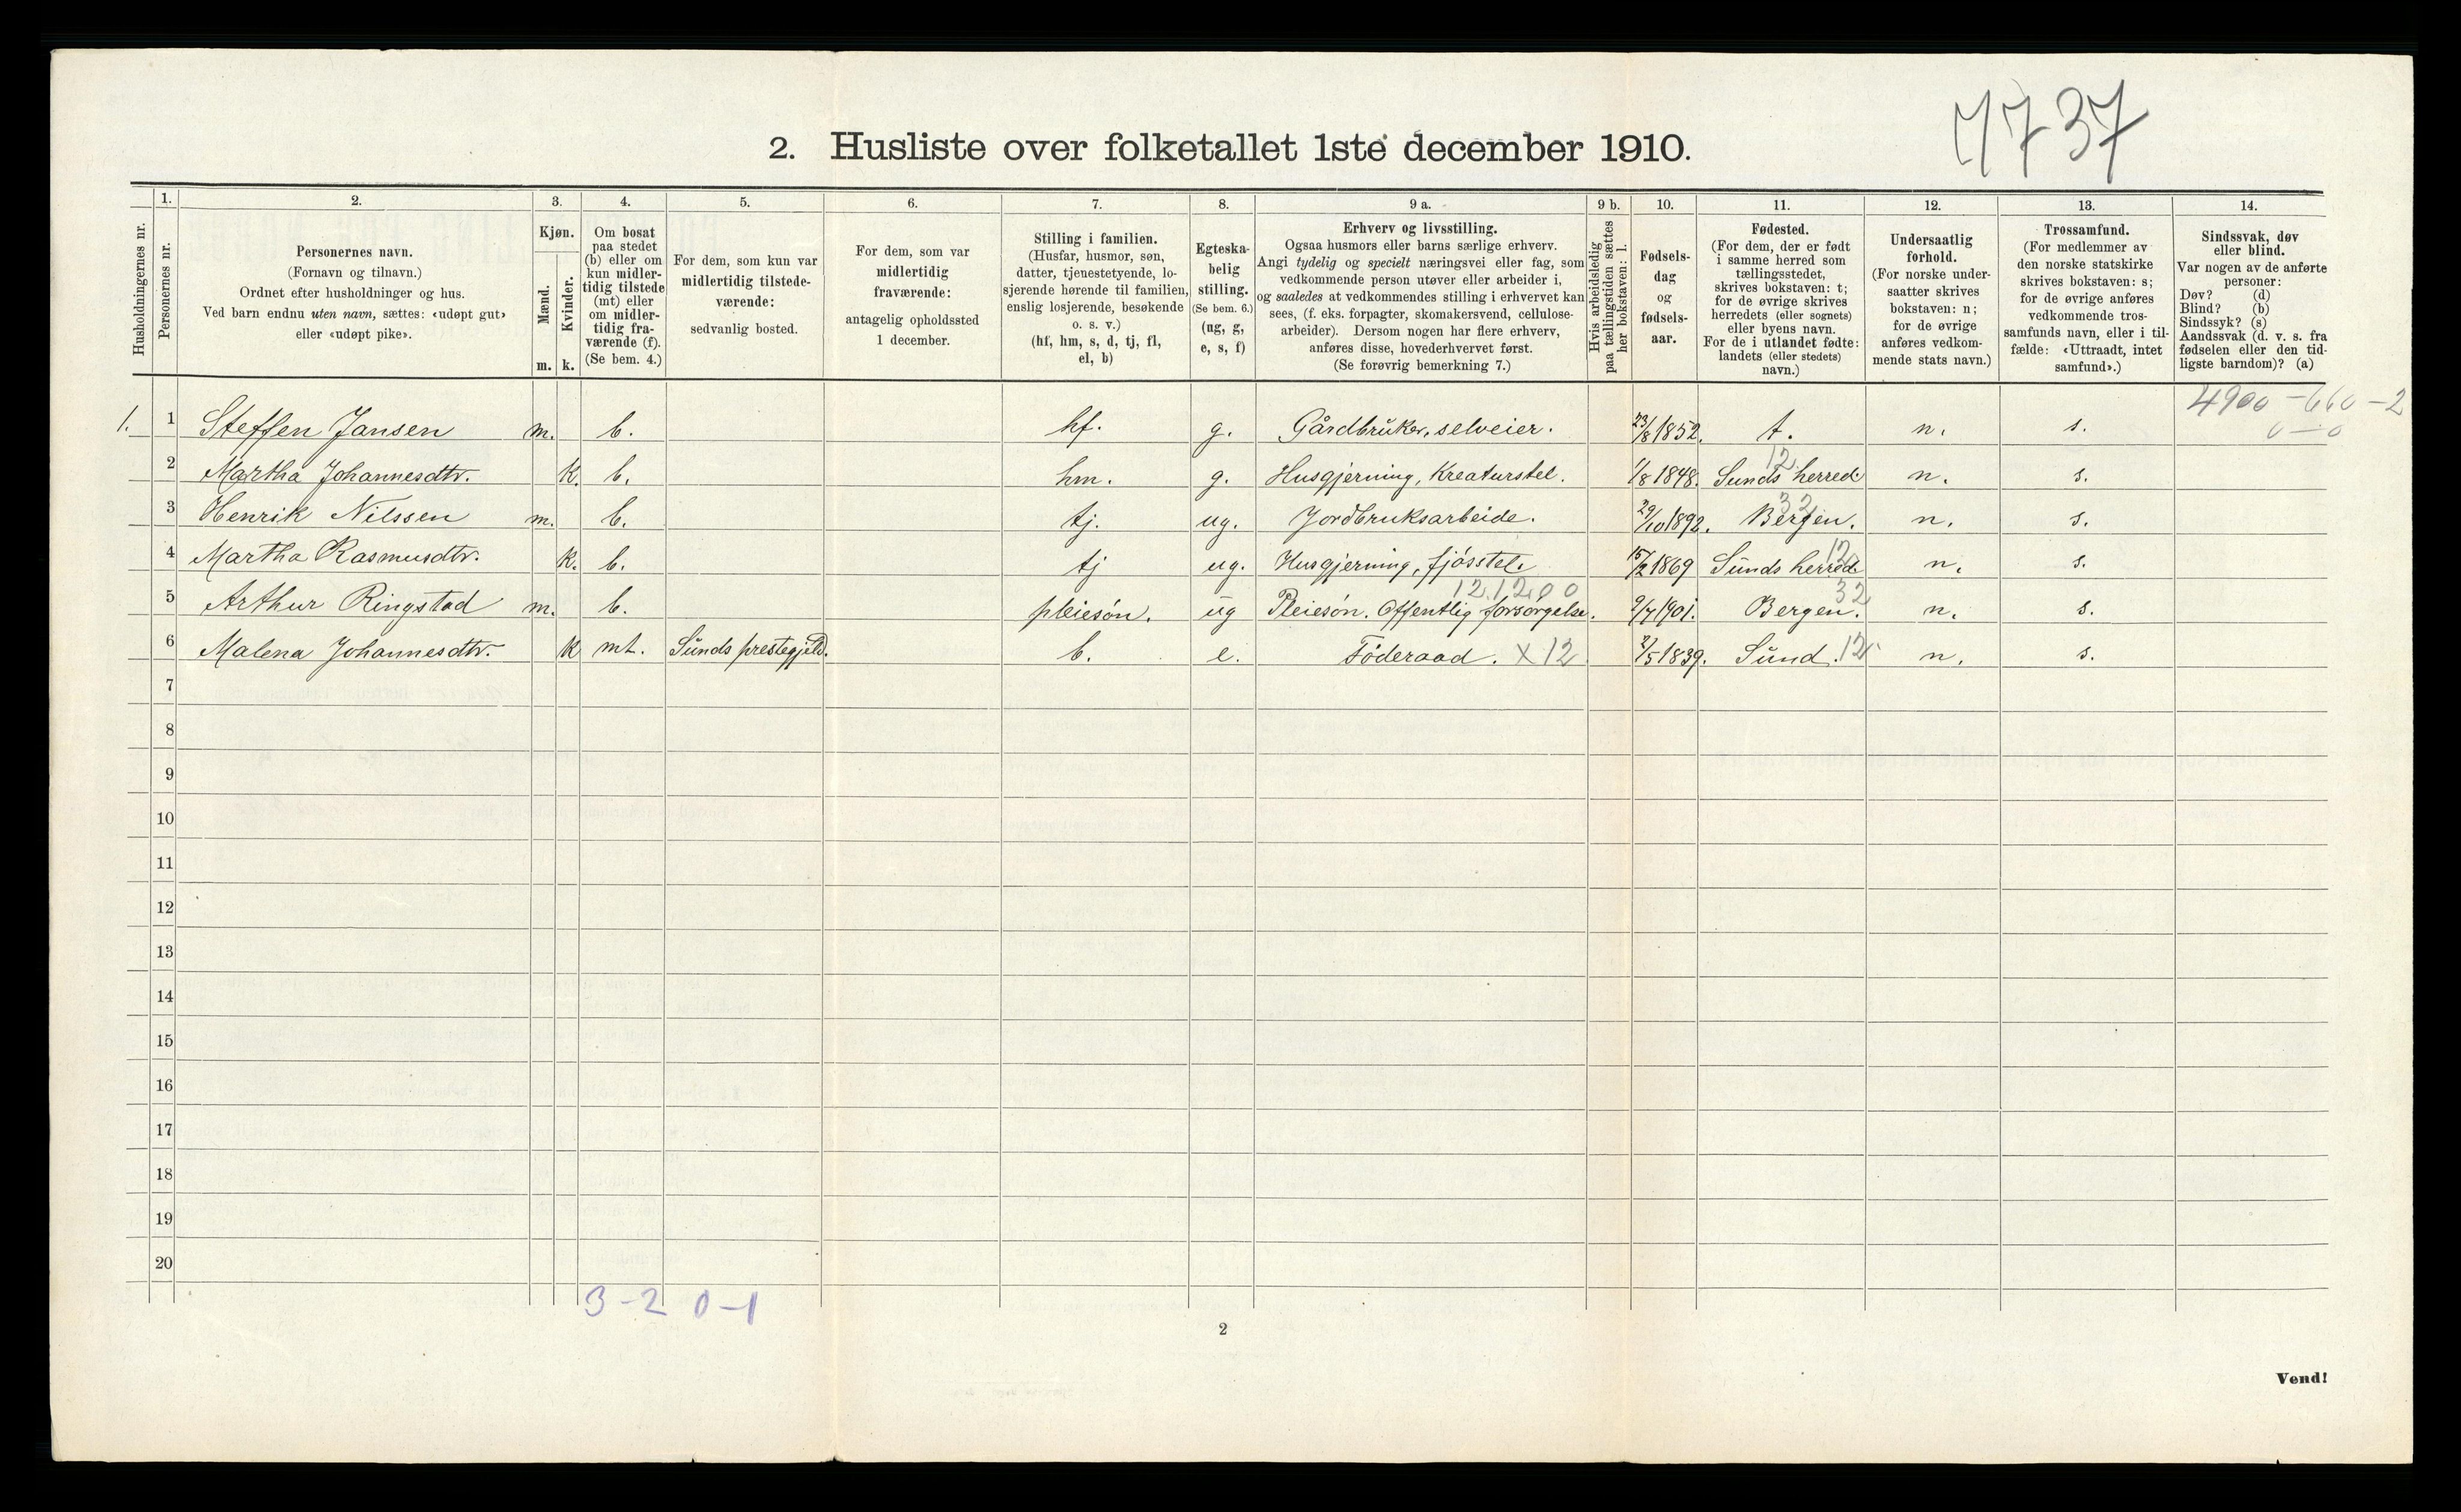 7737
2. Husliste over folketallet 1ste december 1910.
Husholdningernes nr.
1.
Personernes nr.
2.
Personernes navn.
(Fornavn og tilnavn.)
Ordnet efter husholdninger og hus.
Ved barn endnu uten navn, sættes: «udøpt gut»
eller «udøpt pike».
3.
Kjøn.
Mænd.
Kvinder.
m. k.
4.
Om bosat
paa stedet
(b) eller om
kun midler-
tidig tilstede
(mt) eller
om midler-
tidig fra-
værende (f).
(Se bem. 4.)
5.
For dem, som kun var
midlertidig tilstede-
værende:
sedvanlig bosted.
6.
For dem, som var
midlertidig
fraværende:
antagelig opholdssted
1 december.
7.
Stilling i familien.
(Husfar, husmor, søn,
datter, tjenestetyende, lo-
sjerende hørende til familien,
enslig losjerende, besøkende
o. s. v.)
(hf, hm, s, d, tj, fl,
el, b)
8.
Egteska-
belig
stilling.
(Se bem. 6.)
(ug, g,
e, s, f)
9 a.
Erhverv og livsstilling.
Ogsaa husmors eller barns særlige erhverv.
Angi tydelig og specielt næringsvei eller fag, som
vedkommende person utøver eller arbeider i,
og saaledes at vedkommendes stilling i erhvervet kan
sees, (f. eks. forpagter, skomakersvend, cellulose-
arbeider). Dersom nogen har flere erhverv,
anføres disse, hovederhvervet først.
(Se forøvrig bemerkning 7.)
9 b.
Hvis arbeidsledig
paa tællingstiden sættes
her bokstaven: l.
10.
Fødsels-
dag
og
fødsels-
aar.
11.
Fødested.
(For dem, der er født
i samme herred som
tællingsstedet,
skrives bokstaven: t;
for de øvrige skrives
herredets (eller sognets)
eller byens navn.
For de i utlandet fødte:
landets (eller stedets)
navn.)
12.
Undersaatlig
forhold.
(For norske under-
saatter skrives
bokstaven: n;
for de øvrige
anføres vedkom-
mende stats navn.)
13.
Trossamfund.
(For medlemmer av
den norske statskirke
skrives bokstaven: s;
for de øvrige anføres
vedkommende tros-
samfunds navn, eller i til-
fælde: «Uttraadt, intet
samfund».)
14.
Sindssvak, døv
eller blind.
Var nogen av de anførte
personer:
Døv? (d)
Blind? (b)
Sindssyk? (s)
Aandssvak (d. v. s. fra
fødselen eller den tid-
ligste barndom)? (a)
4900 - 660 - 2
0 - 0
1. 1 Steffen Jansen m. b. hf. g. Gårdbruker, selveier. 23/8 1852. t. n. s.
12
2 Martha Johannesdtr. k. b. hm. g. Husgjerning, Kreaturstel. 1/8 1848. Sunds herred n. s.
32
3 Henrik Nilssen m. b. tj. ug. Jordbruksarbeide. 29/10 1892. Bergen. n. s.
12
4 Martha Rasmusdtr. k. b. tj ug. Husgjerning, fjósstel. 15/2 1869 Sunds herred. n. s.
12.1200 32
5 Arthur Ringstad m. b. pleiesón. ug Pleiesón. Offentlig forsórgelse. 9/7 1901. Bergen. n. s.
6 Malena Johannesdtr. k mt. Sunds prestegjeld. b. e. Fóderaad. X12 2/5 1839. Sund. 12 n. s.
7
8
9
10
11
12
13
14
15
16
17
18
19
20
3-2 0-1
2
Vend!